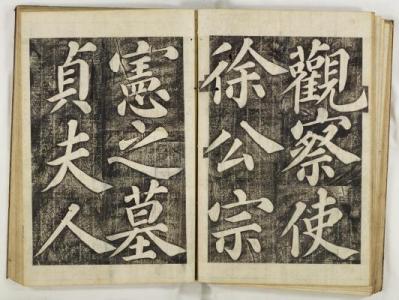 觀察使
徐公宗
憲之墓
貞夫人